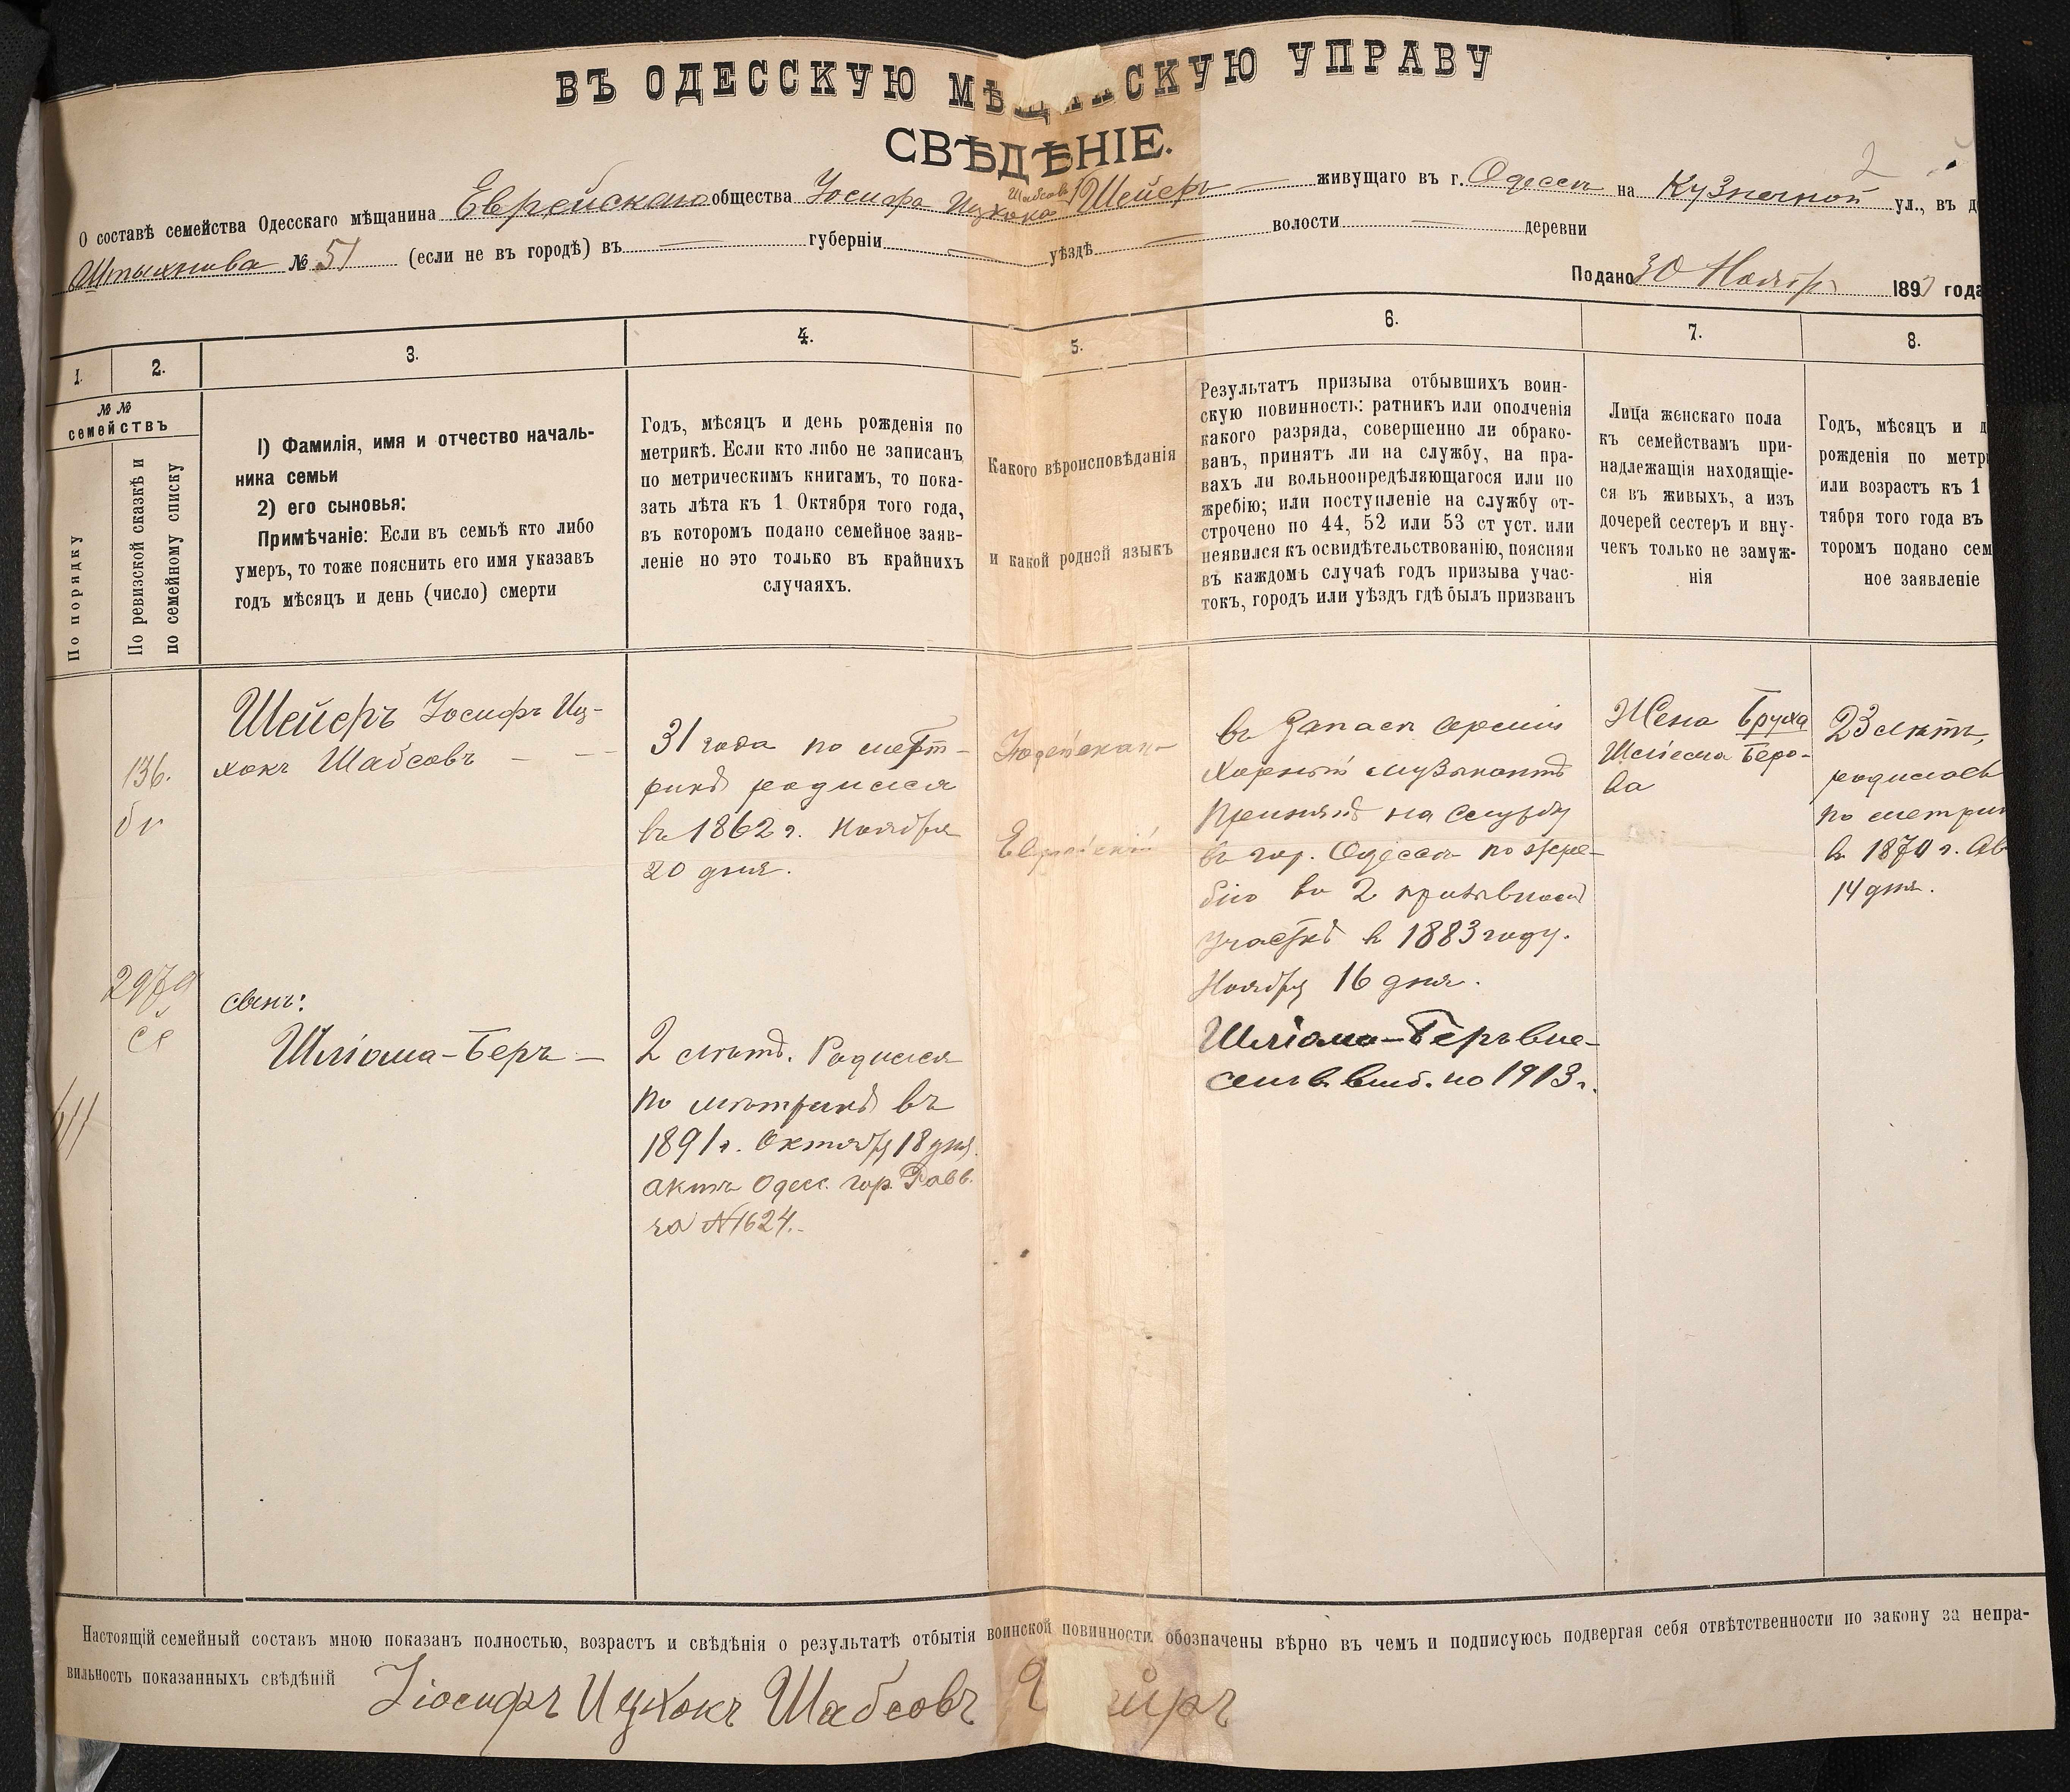 ВЪ ОДЕССКУЮ МѢЩАНСКУЮ УПРАВУ
СВѢДѢНІЕ.
О составѣ семейства Одесскаго мѣщанина Еврейскаго общества Іосифа Ицхока Шабсовъ Шейеръ живущаго въ г. Одессѣ на Кузнечной 2 ул., въ д
№ 51 (если не въ городѣ) въ — губерніи — уѣздѣ — волости — деревни
Подано 30 Ноября 1893 года
1. 2. 3. 4. 5. 6. 7. 8.
№ №
семействъ
По порядку
По ревизской сказкѣ и
по семейному списку
1) Фамилія, имя и отчество началь-
ника семьи
2) его сыновья:
Примѣчаніе: Если въ семьѣ кто либо
умеръ, то тоже пояснить его имя указавъ
годъ мѣсяцъ и день (число) смерти
Годъ, мѣсяцъ и день рожденія по
метрикѣ. Если кто либо не записанъ
по метрическимъ книгамъ, то пока-
зать лѣта къ 1 Октября того года,
въ которомъ подано семейное заяв-
леніе но это только въ крайнихъ
случаяхъ.
Какого вѣроисповѣданія
и какой родной языкъ
Результатъ призыва отбывшихъ воин-
скую повинность: ратникъ или ополченія
какого разряда, совершенно ли обрако-
ванъ, принятъ ли на службу, на пра-
вахъ ли вольноопредѣляющагося или по
жребію; или поступленіе на службу от-
строчено по 44, 52 или 53 ст уст. или
неявился къ освидѣтельствованію, поясняя
въ каждомъ случаѣ годъ призыва учас-
токъ, городъ или уѣздъ гдѣ былъ призванъ
Лица женскаго пола
къ семействамъ при-
надлежащія находящіе-
ся въ живыхъ, а изъ
дочерей сестеръ и вну-
чекъ только не замуж-
нія
Годъ, мѣсяцъ и д
рожденія по метр
или возрастъ къ 1
тября того года въ
торомъ подано сем
ное заявленіе
136.
2979
Шейеръ Іосифъ Иц-
хокъ Шабсовъ — —
31 года по мет-
рикѣ родился
въ 1862 г. Ноября
20 дня.
Іудейскаго
Еврейскій
въ Запасѣ арміи
Хорный музыкантъ
Принятъ на службу
въ гор. Одессѣ по жре-
бію во 2 призывномъ
участкѣ въ 1883 году.
Ноября 16 дня.
Жена Бруха
Шліома Беро-
ва
23 лѣтъ,
родилась
по метрик
въ 1870 г. Ав
14 дня.
сынъ:
Шліома-Беръ —
2 лѣтъ. Родился
по метрикѣ въ
1891 г. Октября 18 дня.
актъ Одес. гор. Равв.
за №1624.
Шліома-Беръ вне-
сенъ в. по 1913 г.
Настоящій семейный составъ мною показанъ полностью, возрастъ и свѣдѣнія о результатѣ отбытія воинской повинности обозначены вѣрно въ чемъ и подписуюсь подвергая себя отвѣтственности по закону за непра-
вильность показанныхъ свѣдѣній Іосифъ Ицхокъ Шабсовъ Шейеръ